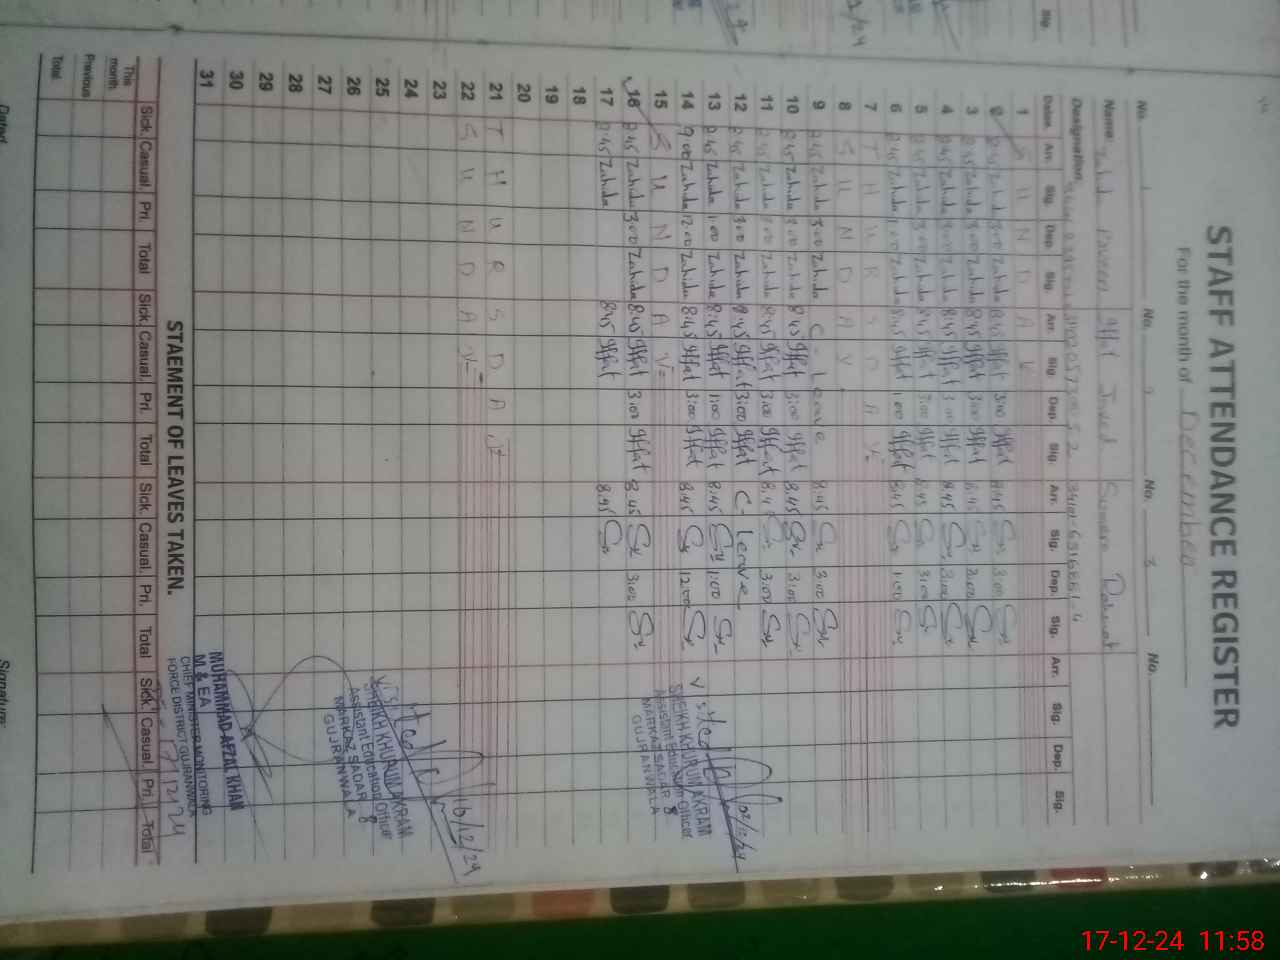 STAFF ATTENDANCE REGISTER
For the month of December
No. 1 No. 2 No. 3 No.
Name Zahida Parveen Iffat Javed Sumera Rahmat
Designation
Dates. Arr. Sig. Dep. Sig. Arr. Sig. Dep. Sig. Arr. Sig. Dep. Sig. Arr. Sig. Dep. Sig.
1 S U N D A Y
2 8:45 Zahida 3:00 Zahida 8:45 Iffat 3:00 Iffat 8:45 3:00
3 8:45 Zahida 3:00 Zahida 8:45 Iffat 3:00 Iffat 8:45 3:00
4 8:45 Zahida 3:00 Zahida 8:45 Iffat 3:00 Iffat 8:45 3:00
5 8:45 Zahida 3:00 Zahida 8:45 Iffat 3:00 Iffat 8:45 3:00
6 8:45 Zahida 1:00 Zahida 8:45 Iffat 1:00 Iffat 8:45 1:00
7 T H U R S D A Y
8 S U N D A Y
9 8:45 Zahida 3:00 Zahida C. Leave 8:45 3:00
10 8:45 Zahida 3:00 Zahida 8:45 Iffat 3:00 Iffat 8:45 3:00
11 8:45 Zahida 3:00 Zahida 8:45 Iffat 3:00 Iffat 8:45 3:00
12 8:45 Zahida 3:00 Zahida 8:45 Iffat 3:00 Iffat C- leave
13 8:45 Zahida 1:00 Zahida 8:45 Iffat 1:00 Iffat 8:45 1:00
14 9:00 Zahida 12:00 Zahida 8:45 Iffat 3:00 Iffat 8:45 12:00
15 S U N D A Y
16 8:45 Zahida 3:00 Zahida 8:45 Iffat 3:00 Iffat 8:45 3:00
17 8:45 Zahida 8:45 Iffat 8:45
18
19
20
21 T H U R S D A Y
22 S U N D A Y
23
24
25
26
27
28
29
30
31
02/12/24
SHEIKH KHURUM AKRAM
Assistant Education Officer
MARKAZ SADAR 8
GUJRANWALA
16/12/24
SHEIKH KHURUM AKRAM
Assistant Education Officer
MARKAZ SADAR 8
GUJRANWALA
MUHAMMAD AFZAL KHAN
M & EA
CHIEF MINISTER MONITORING
FORCE DISTRICT GUJRANWALA
17/12/24
STAEMENT OF LEAVES TAKEN.
Sick. Casual. Pri. Total Sick. Casual. Pri. Total Sick. Casual. Pri. Total Sick. Casual. Pri. Total
This month.
Previous
Total.
Dated
Signature
17-12-24 11:58